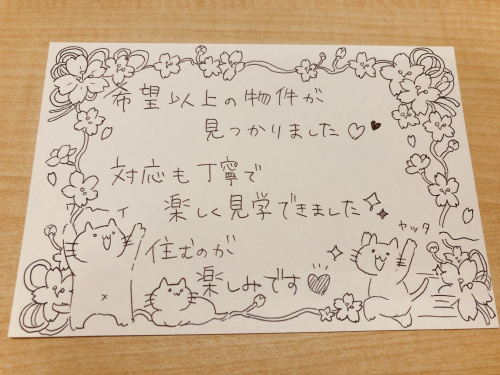 希望以上の物件が
見つかりました♡♥
対応も丁寧で
楽しく見学できました
住むのが
楽しみです
ヤッタ